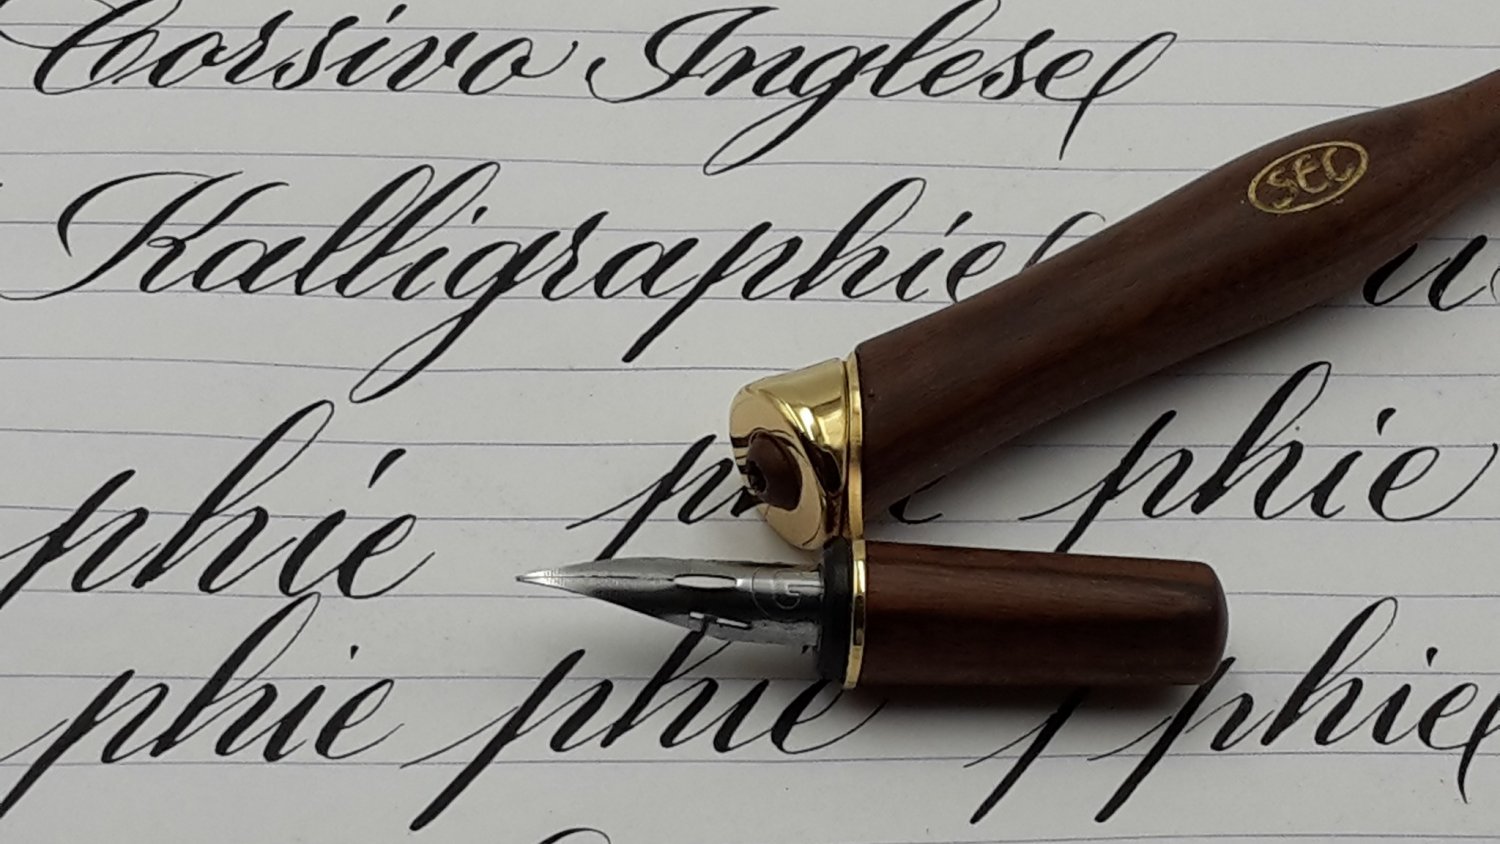 Corsivo Inglese
Kalligraphie
SEC
phie phie
G
phie phie phie